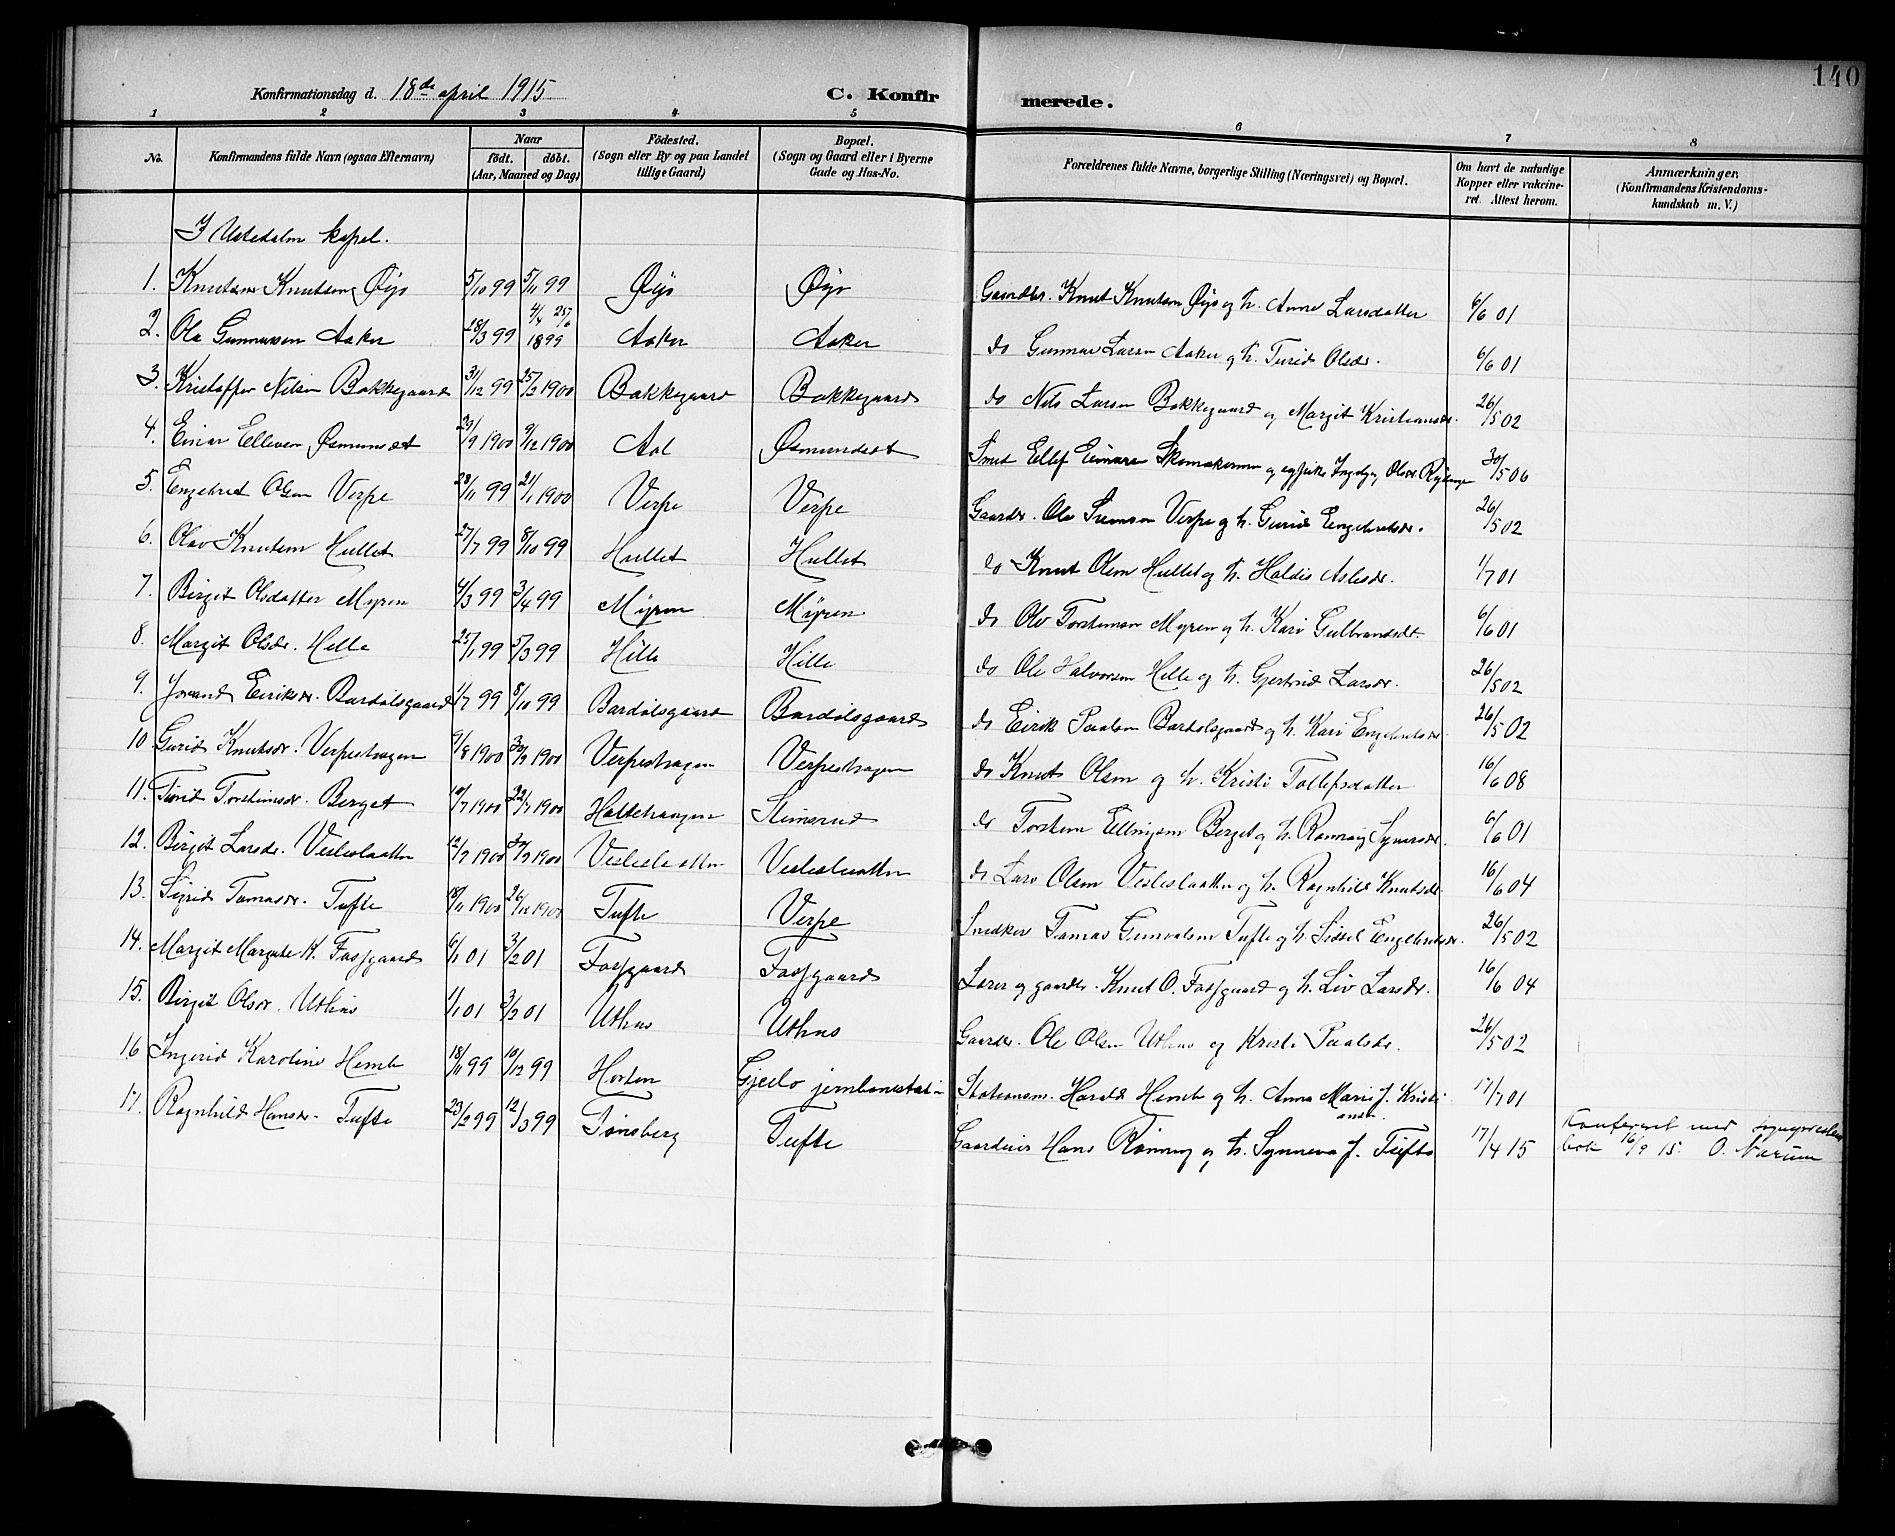 140
Konfirmationsdag d. 18de april 1915
C. Konfirmerede.
1 2 3 4 5 6 7 8
No. | Konfirmandens fulde Navn (ogsaa Efternavn) | Naar født. døbt. (Aar, Maaned og Dag) | Fødested. (Sogn eller By og paa Landet tillige Gaard) | Bopæl. (Sogn og Gaard eller i Byerne Gade og Hus-No. | Forældrenes fulde Navne, borgerlige Stilling (Næringsvei) og Bopæl. | Om havt de naturlige Kopper eller vakcineret. Attest herom. | Anmærkninger. (Konfirmandens Kristendomskundskab m. V.)
I Ustedalen kapel.
1. Knut Knutsen Øijo 5/10 99 5/11 99 Øijo Øijo Gaardbr. Knut Knutsen Øijo og h. Anne Larsdatter 6/6 01
2. Ola Gunnarsen Aaker 28/3 99 4/4 25/6 1899 Aaker Aaker do Gunnar Larsen Aaker og h. Turid Olsdr. 6/6 01
3. Kristoffer Nilsen Bakkegaard 31/12 99 25/2 1900 Bakkegaard Bakkegaard do Nils Larsen Bakkegaard og Margit Kristiansdr. 26/5 02
4. Einar Ellevsen Øsmundset 29/9 1900 9/12 1900 Aal Øsmundset Smed Ellef Einarsen Skomakermoen og Ingebjørg Olsdr 30/5 06
5. Engebret Olsen Verpe 28/11 99 21/1 1900 Verpe Verpe Gaardbr. Ole Svensen Verpe og h. Guri Engebretsdr. 26/5 02
6. Olav Knutsen Hullet 27/7 99 8/10 99 Hullet Hullet do Knut Olsen Hullet og h. Haldis Aslesdr. 1/7 01
7. Birgit Olsdatter Myren 4/3 99 3/4 99 Myren Myren do Olv Torsteinsen Myren og h. Kari Gulbrandsdr. 6/6 01
8. Margit Olsdr. Helle 25/1 99 5/3 99 Hille Hille do Ole Halvorsen Helle og h. Gjertrud Larsdr. 26/5 02
9. Jorand Eiriksdr. Bardølsgaard 1/7 99 8/10 99 Bardølsgaard Bardølsgaard do Eirik Paalsen Bardølsgaard og h. Kari Engebretsdr 26/5 02
10 Gurid Knutsdr. Verpeshagen 9/8 1900 30/9 1900 Verpeshagen Verpeshagen do Knut Olsen og h. Kristi Tollefsdatter 16/6 08
11. Turid Torsteinsdr. Berget 10/7 1900 22/7 1900 Haltehaugen Steinerud do Torstein Ellingsen Berget og h. Rannveig Syversdr. 6/6 01
12. Birgit Larsdr. Vesleslaatten 12/7 1900 30/9 1900 Vesleslaatten Vesleslaatten do Lars Olsen Vesleslaatten og h. Ragnhild Knutsdr. 16/6 04
13. Sigrid Tomasdr. Tufte 18/11 1900 26/12 1900 Tufte Verpe Snedker Tomas Gunvalsen Tufte og h. Sidsel Engebretsdr. 26/5 02
14. Margit Margrete K. Fossgaard 6/1 01 3/2 01 Fossgaard Fossgaard Lærer og gaardbr. Knut O. Fossgaard og h. Liv Larsdr. 16/6 04
15. Birgit Olsdr. Uthus 1/1 01 3/2 01 Uthus Uthus Gaardbr. Ole Olsen Uthus og Kristi Paalsdr. 26/5 02
16 Ingerid Karoline Hemb 18/11 99 10/12 99 Horten Gjeilo jernbanestation Stationsm. Harald Hemb og h. Anna Marie J. Kristiansen 17/7 01
17. Ragnhild Hansdr. Tufte 23/2 99 12/3 99 Tønsberg Tufte Gaardeier Hans Rønning og h. Synneva J. Tufte 17/4 15 Konferert med sogneprestens bok 16/9 15. O. Narum